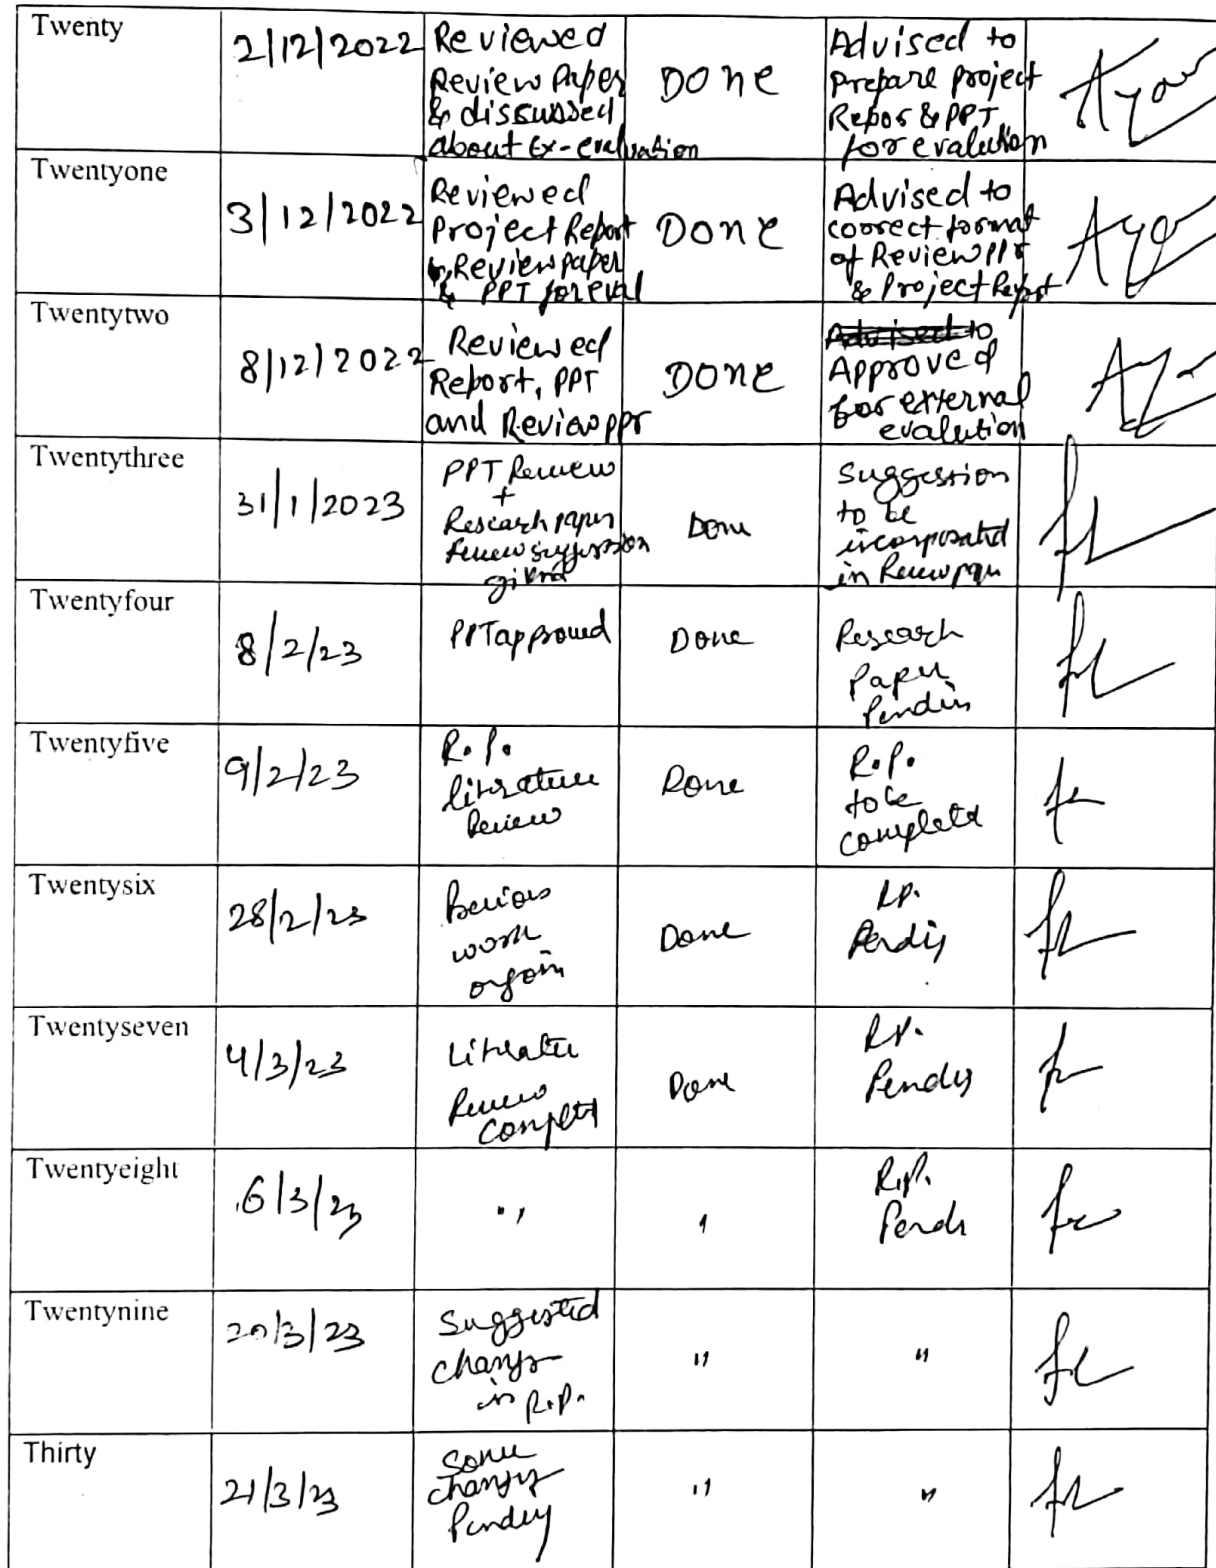 Twenty
2/12/2022
Reviewed
Review Paper
& discussed
about Ex-evaluation
DONE
Advised to
Prepare project
Repor & PPT
for evalution
Twentyone
3/12/2022
Reviewed
Project Report
Review paper
& PPT for eval
DONE
Advised to
coorect format
of Review ppr
& Project Report
Twentytwo
8/12/2022
Reviewed
Report, PPT
and Review ppr
DONE
Advised to
Approved
for external
evalution
Twentythree
31/1/2023
PPT Review
+
Research paper
Review suggestion
given
Done
Suggestion
to be
incorporated
in Review
Twentyfour
8/2/23
PPT approved
Done
Research
Paper
Pending
Twentyfive
9/2/23
R.P.
literature
Review
Done
R.P.
to be
completed
Twentysix
28/2/23
work
Done
R.P.
Pending
Twentyseven
4/3/23
Literature
Review
Completed
Done
R.P.
Pending
Twentyeight
6/3/23
"
R.P.
Pending
Twentynine
20/3/23
Suggested
changes
in R.P.
"
"
Thirty
21/3/23
Some
changes
Pending
"
"